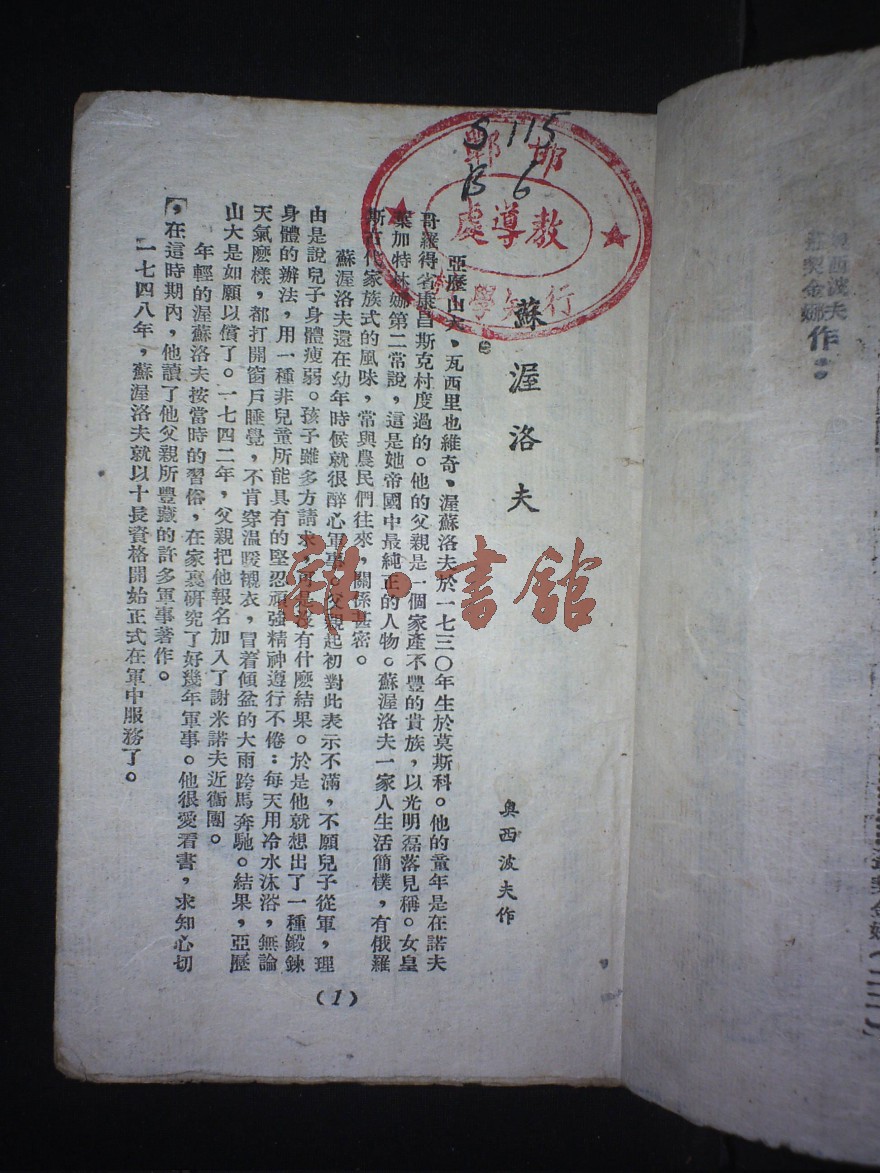 西波夫
契金娜作：
S 115
B 6
邯鄲
教導處
行知學
蘇渥洛夫
奥西波夫作
亞歷山大、瓦西里也維奇、渥蘇洛夫於一七三〇年生於莫斯科。他的童年是在諾夫
哥羅得省康昌斯克村度過的。他的父親是一個家產不豐的貴族，以光明磊落見稱。女皇
葉加特林娜第二常說，這是她帝國中最純正的人物。蘇渥洛夫一家人生活簡樸，有俄羅
斯古代家族式的風味，常與農民們往來，關係甚密。
蘇渥洛夫還在幼年時候就很醉心軍事。父親起初對此表示不滿，不願兒子從軍，理
由是說兒子身體瘦弱。孩子雖多方請求，可是沒有什麽結果。於是他就想出了一種鍛鍊
身體的辦法，用一種非兒童所能具有的堅忍頑強精神遵行不倦：每天用冷水沐浴，無論
天氣麽樣，都打開窗戶睡覺，不肯穿溫暖襯衣，冒着傾盆的大雨跨馬奔馳。結果，亞歷
山大是如願以償了。一七四二年，父親把他報名加入了謝米諾夫近衛團。
年輕的渥蘇洛夫按當時的習俗，在家裏研究了好幾年軍事。他很愛看書，求知心切
，在這時期內，他讀了他父親所豐藏的許多軍事著作。
一七四八年，蘇渥洛夫就以十長資格開始正式在軍中服務了。
(1)
雜·書館